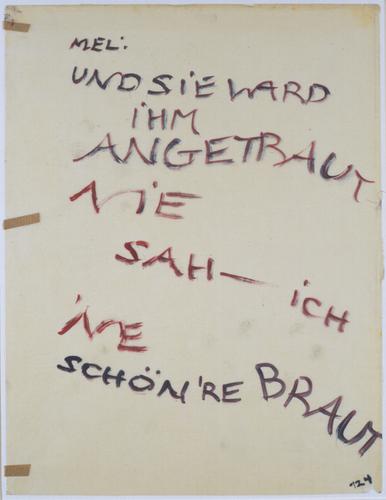 MEL:
UND SIE WARD
IHM
ANGETRAUT
NIE
SAH — ICH
'NE
SCHÖN'RE BRAUT
124